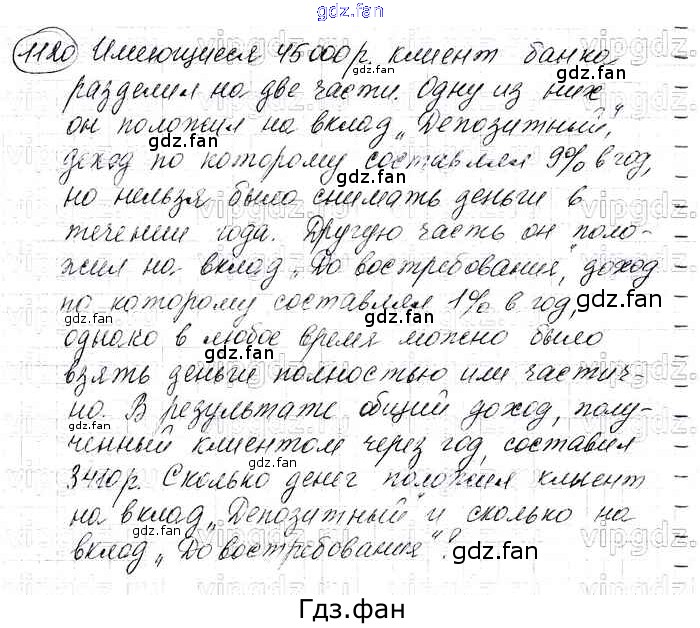 gdz.fan
1120 Имеющиеся 45000р. клиент банка
gdz.fan
разделил на две части. Одну из них
он положил на вклад „Депозитный",
gdz.fan
доход по которому составлял 9% в год,
но нельзя было снимать деньги в
gdz.fan
течении года. Другую часть он поло-
жил на вклад „До востребования", доход
по которому составлял 1% в год,
gdz.fan
gdz.fan
однако в любое время можно было
gdz.fan
взять деньги полностью или частич-
но. В результате общий доход, полу-
gdz.fan
gdz.fan
ченный клиентом через год, составил
3410р. Сколько денег положил клиент
gdz.fan
на вклад „Депозитный" и сколько на
gdz.fan
вклад „До востребования"?
gdz.fan
Гдз.фан